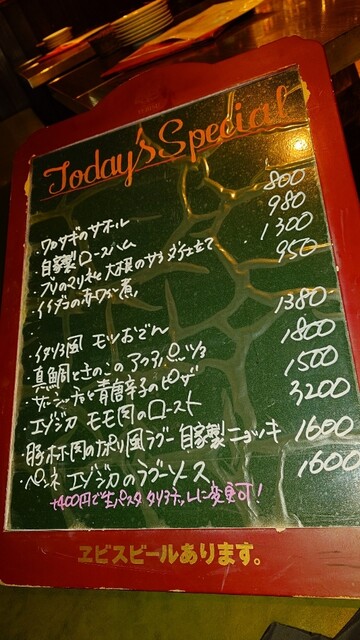 Today's Special
・ワカサギのサオール 800
自家製ロースハム 980
・ブリのマリネと大根のサラダ仕立て 1300
・イイダコの赤ワイン煮 950
・イタリア風 モツおでん 1380
・真鯛ときのこのアクアパッツァ 1800
・サルシッチャと青唐辛子のピザ 1500
・エゾジカ モモ肉のロースト 3200
・豚ホホ肉のナポリ風ラグー 自家製ニョッキ 1600
・ペンネ エゾジカのラグーソース 1600
+400円で生パスタ タリアテッレに変更可!
ヱビスビールあります。